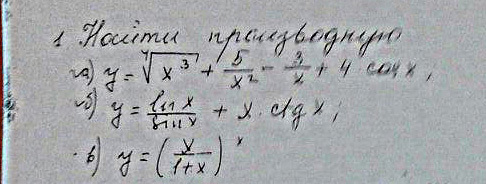 1 Найти производную
а) y = ⁴√x³ + 5/x² - 3/x + 4 cos x,
б) y = ln x / sin x + x · ctg x;
в) y = (x / 1+x)ˣ